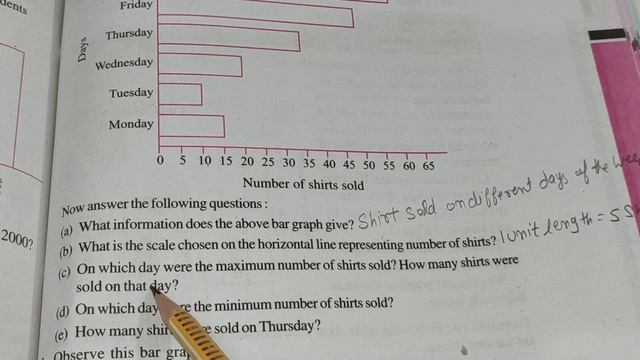 dents
Friday
Thursday
Wednesday
Tuesday
Monday
Days
0 5 10 15 20 25 30 35 40 45 50 55 60 65
Number of shirts sold
Now answer the following questions :
(a) What information does the above bar graph give? Shirt sold on different days of the wee
(b) What is the scale chosen on the horizontal line representing number of shirts? 1 unit length = 5 S
(c) On which day were the maximum number of shirts sold? How many shirts were
sold on that day?
(d) On which day re the minimum number of shirts sold?
(e) How many shir re sold on Thursday?
Observe this bar gra
2000?